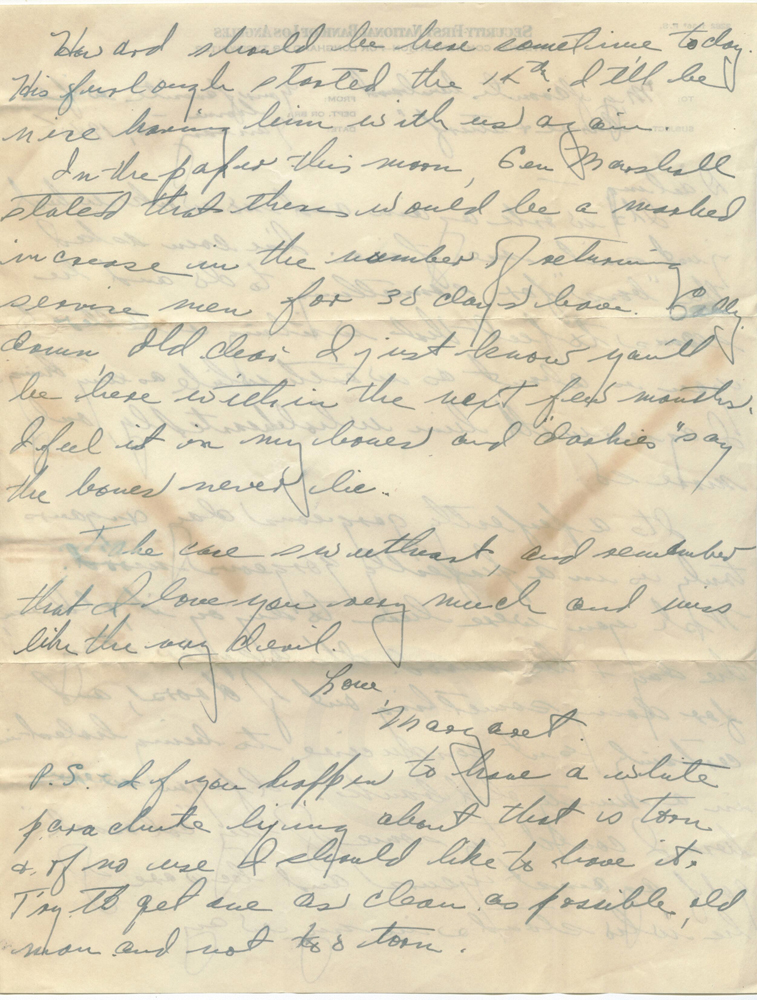 Howard should be here sometime today.
His furlough started the 15th. It'll be
nice having him with us again.
In the paper this morn, Gen Marshall
stated that there would be a marked
increase in the number of returning
service men for 30 days leave. Golly
darn, old dear I just know you'll
be here within the next few months.
I feel it in my bones and "darkies" say
the bones never lie.
Take care sweetheart, and remember
that I love you very much and miss
like the very devil.
Love,
Margaret.
P.S. If you happen to have a white
parachute lying about that is torn
& of no use I should like to have it.
Try to get one as clean as possible, old
man and not too torn.